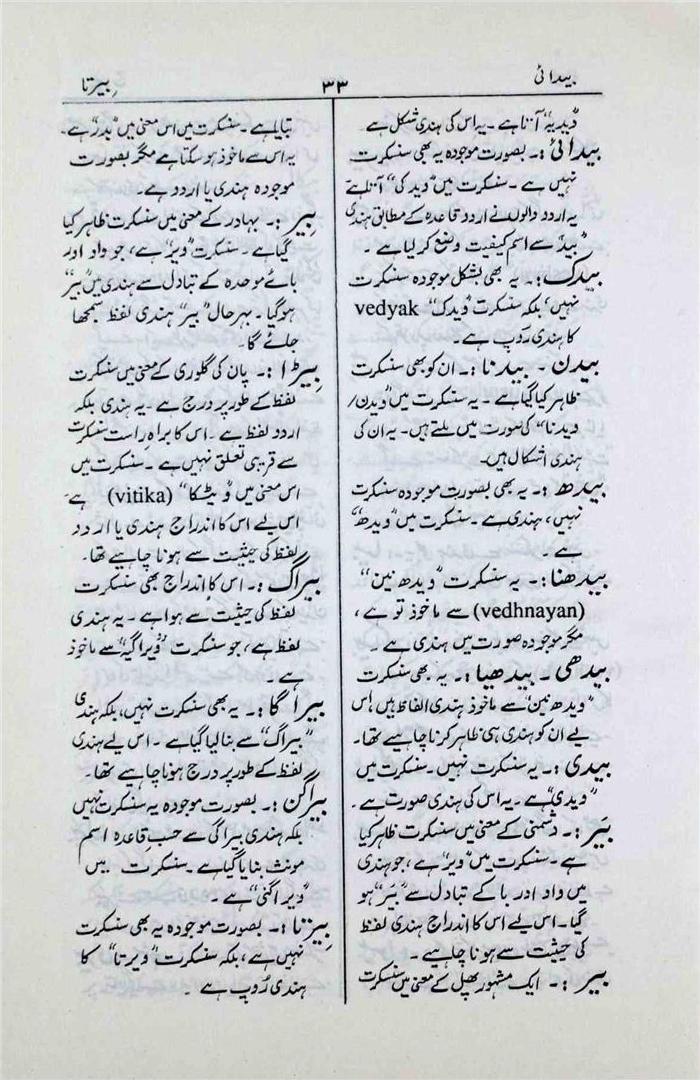 بیدائی
۳۳
بیرتا
”یدیہ“ آتا ہے۔ یہ اس کی ہندی شکل ہے
بیدائی :۔ بصورت موجودہ یہ بھی سنسکرت
نہیں ہے۔ سنسکرت میں ”ویدکی“ آتا ہے
یہ اردو والوں نے اردو قاعدہ کے مطابق ہندی
”بید“ سے اسم کیفیت وضع کرلیا ہے۔
بیدک :۔ یہ بھی بشکل موجودہ سنسکرت
نہیں، بلکہ سنسکرت ”ویدک“ vedyak
کا ہندی رُوپ ہے۔
بیدن۔ بیدنا :۔ ان کو بھی سنسکرت
ظاہر کیا گیا ہے۔ یہ سنسکرت میں ”ویدن/
ویدنا“ کی صورت میں ملتے ہیں۔ یہ ان کی
ہندی اشکال ہیں۔
بیدھ :۔ یہ بھی بصورت موجودہ سنسکرت
نہیں، ہندی ہے۔ سنسکرت میں ”ویدھ“
ہے۔
بیدھنا :۔ یہ سنسکرت ”ویدھ نین“
(vedhnayan) سے ماخوذ تو ہے،
مگر موجودہ صورت میں ہندی ہے۔
بیدھی۔ بیدھیا :۔ یہ بھی سنسکرت
”ویدھ نین“ سے ماخوذ ہندی الفاظ ہیں، اس
لیے ان کو ہندی ہی ظاہر کرنا چاہیے تھا۔
بیدی :۔ یہ سنسکرت نہیں۔ سنسکرت میں
”ویدی“ ہے۔ یہ اس کی ہندی صورت ہے۔
بَیر :۔ دشمنی کے معنی میں سنسکرت ظاہر کیا
ہے۔ سنسکرت میں ”ویر“ ہے، جو ہندی
میں واو اور با کے تبادل سے ”بَیر“ ہو
گیا۔ اس لیے اس کا اندراج ہندی لفظ
کی حیثیت سے ہونا چاہیے۔
بیر :۔ ایک مشہور پھل کے معنی میں سنسکرت
بتایا ہے۔ سنسکرت میں اس معنی میں ”بدر“ ہے۔
یہ اس سے ماخوذ ہوسکتا ہے مگر بصورت
موجودہ ہندی یا اردو ہے۔
بِیر :۔ بہادر کے معنی میں سنسکرت ظاہر کیا
گیا ہے۔ سنسکرت ”ویر“ ہے، جو واو اور
بائے موحدہ کے تبادل سے ہندی میں ”بیر“
ہوگیا۔ بہرحال ”بیر“ ہندی لفظ سمجھا
جائے گا۔
بِیڑا :۔ پان کی گلوری کے معنی میں سنسکرت
لفظ کے طور پر درج ہے۔ یہ ہندی بلکہ
اردو لفظ ہے۔ اس کا براہِ راست سنسکرت
سے قریبی تعلق نہیں ہے۔ سنسکرت میں
اس معنی میں ”وٹیکا“ (vitika) ہے،
اس لیے اس کا اندراج ہندی یا اردو
لفظ کی حیثیت سے ہونا چاہیے تھا۔
بیراگ :۔ اس کا اندراج بھی سنسکرت
لفظ کی حیثیت سے ہوا ہے۔ یہ ہندی
لفظ ہے، جو سنسکرت ”ویراگیہ“ سے ماخوذ
ہے۔
بیراگا :۔ یہ بھی سنسکرت نہیں، بلکہ ہندی
”بیراگ“ سے بنالیا گیا ہے۔ اس لیے ہندی
لفظ کے طور پر درج ہونا چاہیے تھا۔
بیراگن :۔ بصورت موجودہ یہ سنسکرت نہیں
بلکہ ہندی بیراگی سے حسب قاعدہ اسم
مونث بنایا گیا ہے۔ سنسکرت میں
”ویراگنی“ ہے۔
بِیرتا :۔ بصورت موجودہ یہ بھی سنسکرت
نہیں ہے، بلکہ سنسکرت ”ویرتا“ کا
ہندی رُوپ ہے۔